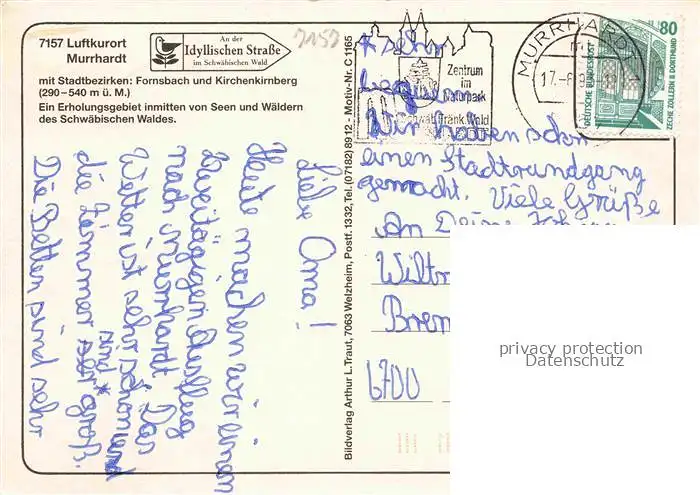 7157 Luftkurort
Murrhardt
An der
Idyllischen Straße
im Schwäbischen Wald
mit Stadtbezirken: Fornsbach und Kirchenkirnberg
(290–540 m ü. M.)
Ein Erholungsgebiet inmitten von Seen und Wäldern
des Schwäbischen Waldes.
7157
Liebe Oma!
Heute machen wir einen
zweitägigen Ausflug
nach Murrhardt. Das
Wetter ist sehr schön und
die Zimmer sind sehr groß.
Die Betten sind sehr
Bildverlag Arthur L. Traut, 7063 Welzheim, Postf. 1332, Tel. (07182) 8912 - Motiv-Nr. C 1165
* sehr
bequem.
Wir haben schon
einen Stadtrundgang
gemacht. Viele Grüße
Deine
An
Wiltr
Brem
6700
Zentrum
im
Naturpark
Schwäb. Fränk. Wald
MURRHARDT
17.-6.9
DEUTSCHE BUNDESPOST
80
ZECHE ZOLLERN II DORTMUND
privacy protection
Datenschutz